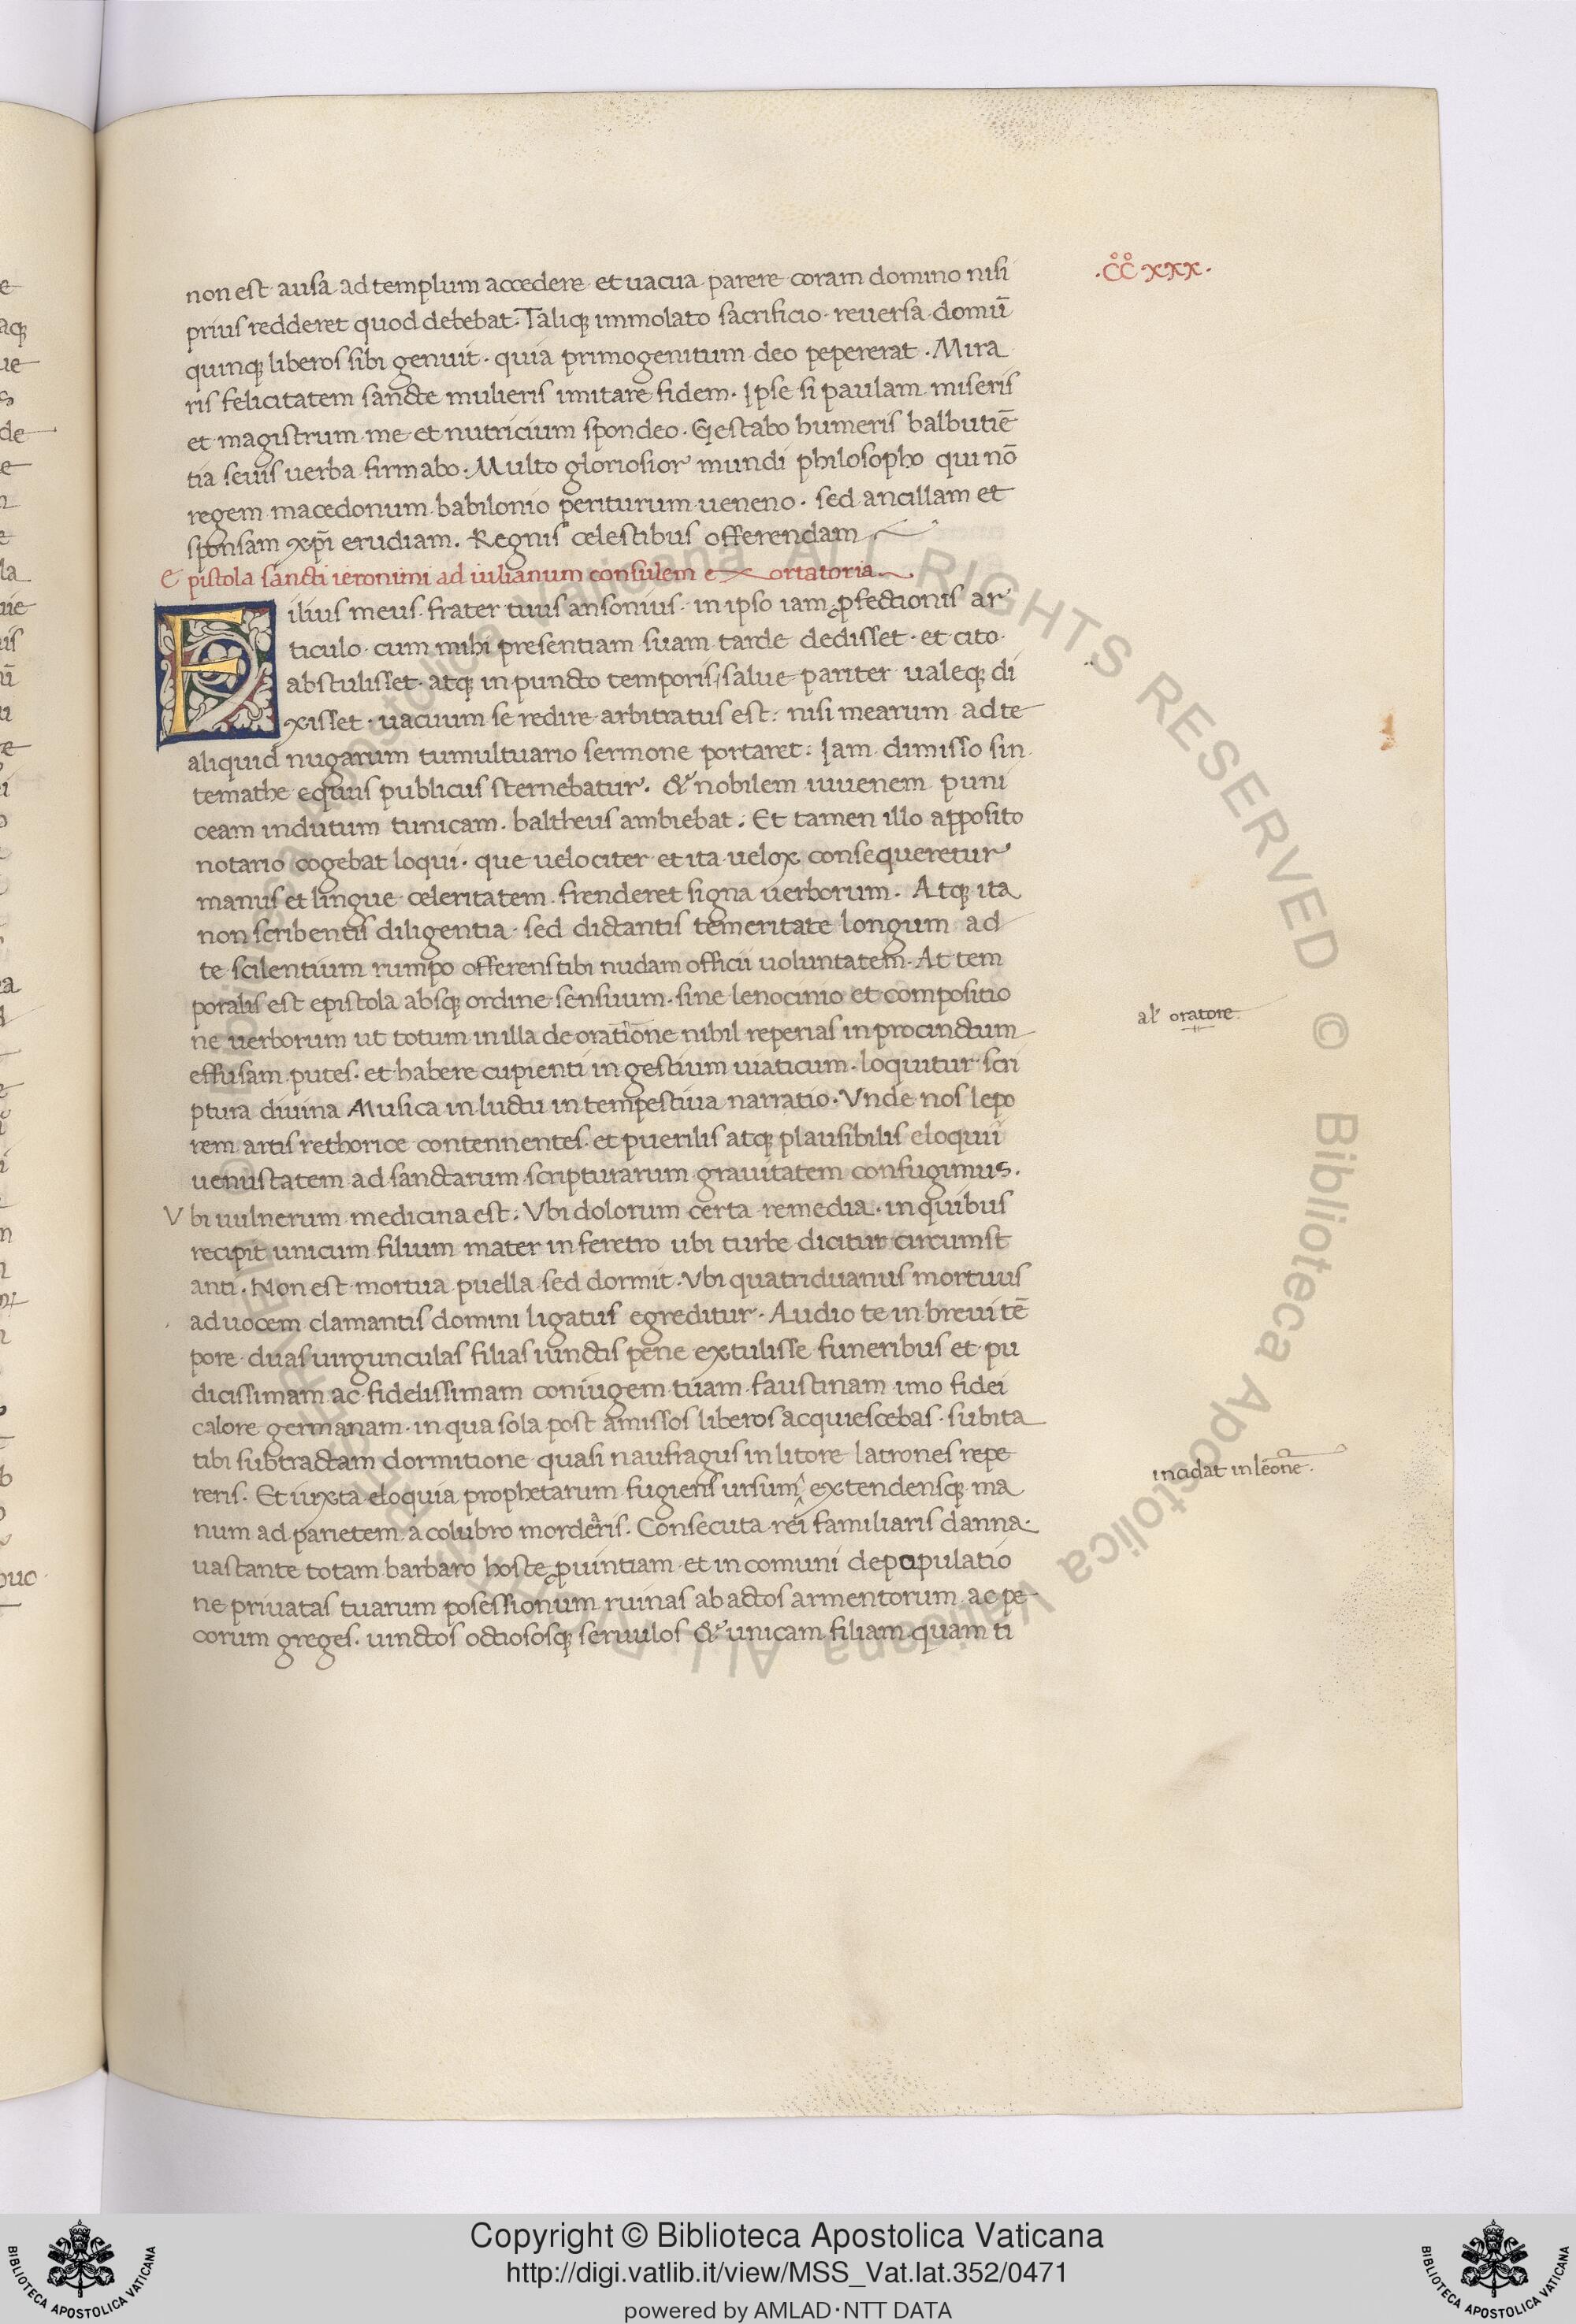 ·CC·xxx·
non est ausa ad templum accedere et uacua parere coram domino nisi
prius redderet quod debebat. Taliqꝫ immolato sacrificio· reuersa domū
quinqꝫ liberos sibi genuit· quia primogenitum deo pepererat· Mira
ris felicitatem sancte mulieris imitare fidem· Ipse si paulam miseris
et magistrum me et nutricium spondeo· Gestabo humeris balbutiē
tia senis uerba firmabo· Multo gloriosior mundi philosopho qui nō
regem macedonum babilonio periturum ueneno· sed ancillam et
sponsam xp̄i erudiam. Regnis celestibus offerendam
Epistola sancti ieronimi ad iulianum consulem exortatoria.
Filius meus frater tuus ansonius· in ipso iam ꝓfectionis ar
ticulo· cum mihi presentiam suam tarde dedisset· et cito
abstulisset· atqꝫ in puncto temporis salue pariter ualeqꝫ di
xisset· uacuum se redire arbitratus est: nisi mearum ad te
aliquid nugarum tumultuario sermone portaret: Iam dimisso sin
temathe equus publicus sternebatur. & nobilem iuuenem puni
ceam indutum tunicam. baltheus ambiebat: Et tamen illo apposito
notario cogebat loqui· que uelociter et ita uelox consequeretur
manus et lingue celeritatem frenderet signa uerborum. Atqꝫ ita
non scribentis diligentia· sed dictantis temeritate longum ad
te scilentium rumpo offerens tibi nudam officii uoluntatem· At tem
poralis est epistola absqꝫ ordine sensuum· sine lenocinio et compositio
ne uerborum ut totum in illa de oratione nihil reperias in procinctum
al' oratore.
effusam putes· et habere cupienti in gestium uiaticum· loquitur scri
ptura diuina Musica in luctu in tempestiua narratio· Vnde nos lepo
rem artis rethorice contennentes· et puerilis atqꝫ plausibilis eloquii
uenustatem ad sanctarum scripturarum grauitatem confugimus.
Vbi uulnerum medicina est: Vbi dolorum certa remedia· in quibus
recipit unicum filium mater in feretro ubi turbe dicitur circumst
anti· Non est mortua puella sed dormit· Vbi quatriduanus mortuus
ad uocem clamantis domini ligatus egreditur· Audio te in breui tē
pore duas uirgunculas filias iunctis pene extulisse funeribus et pu
dicissimam ac fidelissimam coniugem tuam faustinam imo fidei
calore germanam· in qua sola post amissos liberos acquiescebas· subita
tibi subtractam dormitione quasi naufragus in litore latrones repe
reris. Et iuxta eloquia prophetarum fugiens ursum extendensqꝫ ma
incidat in leone.
num ad parietem a colubro morderis. Consecuta rei familiaris danna·
uastante totam barbaro hoste ꝓuintiam et in comuni depopulatio
ne priuatas tuarum posessionum ruinas ab actos armentorum ac pe
corum greges· uinctos octiososqꝫ seruulos & unicam filiam quam ti
Copyright © Biblioteca Apostolica Vaticana
http://digi.vatlib.it/view/MSS_Vat.lat.352/0471
powered by AMLAD·NTT DATA